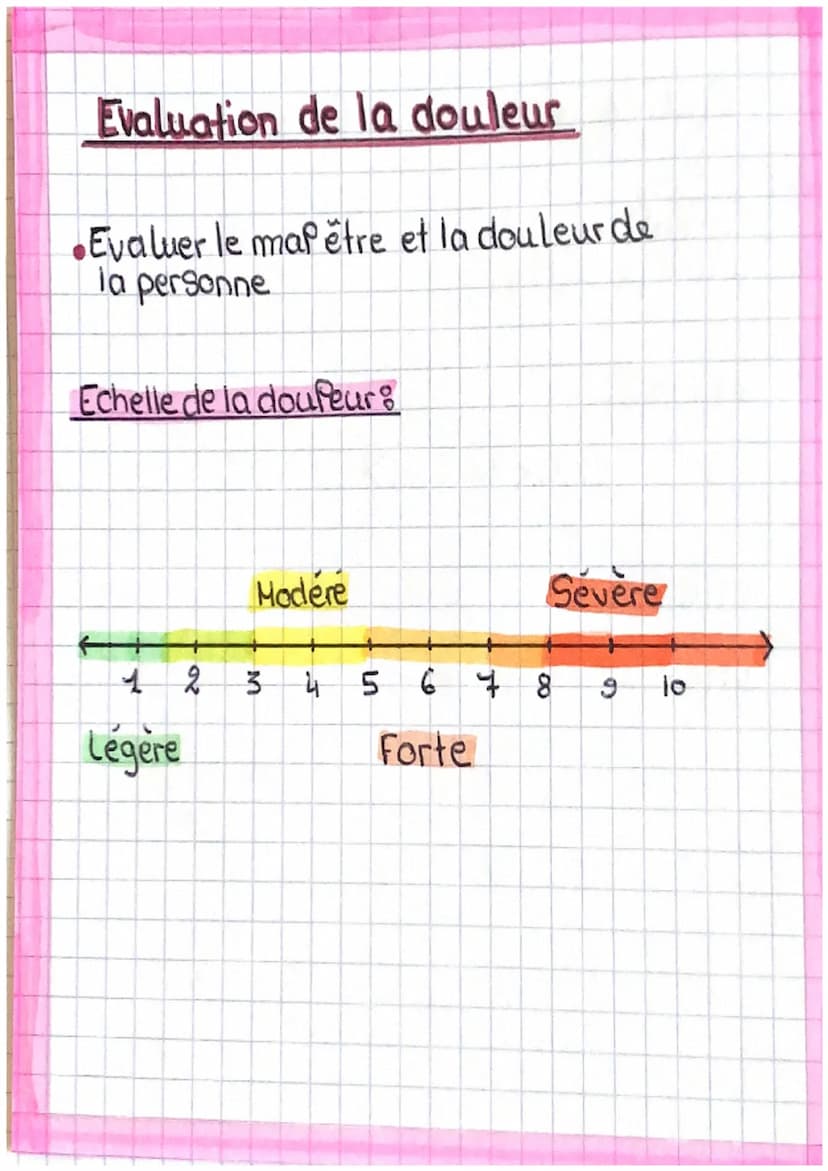 Evaluation de la douleur
• Evaluer le mal être et la douleur de
la personne
Echelle de la douleur :
Modéré Sévère
1 2 3 4 5 6 7 8 9 10
Légère Forte